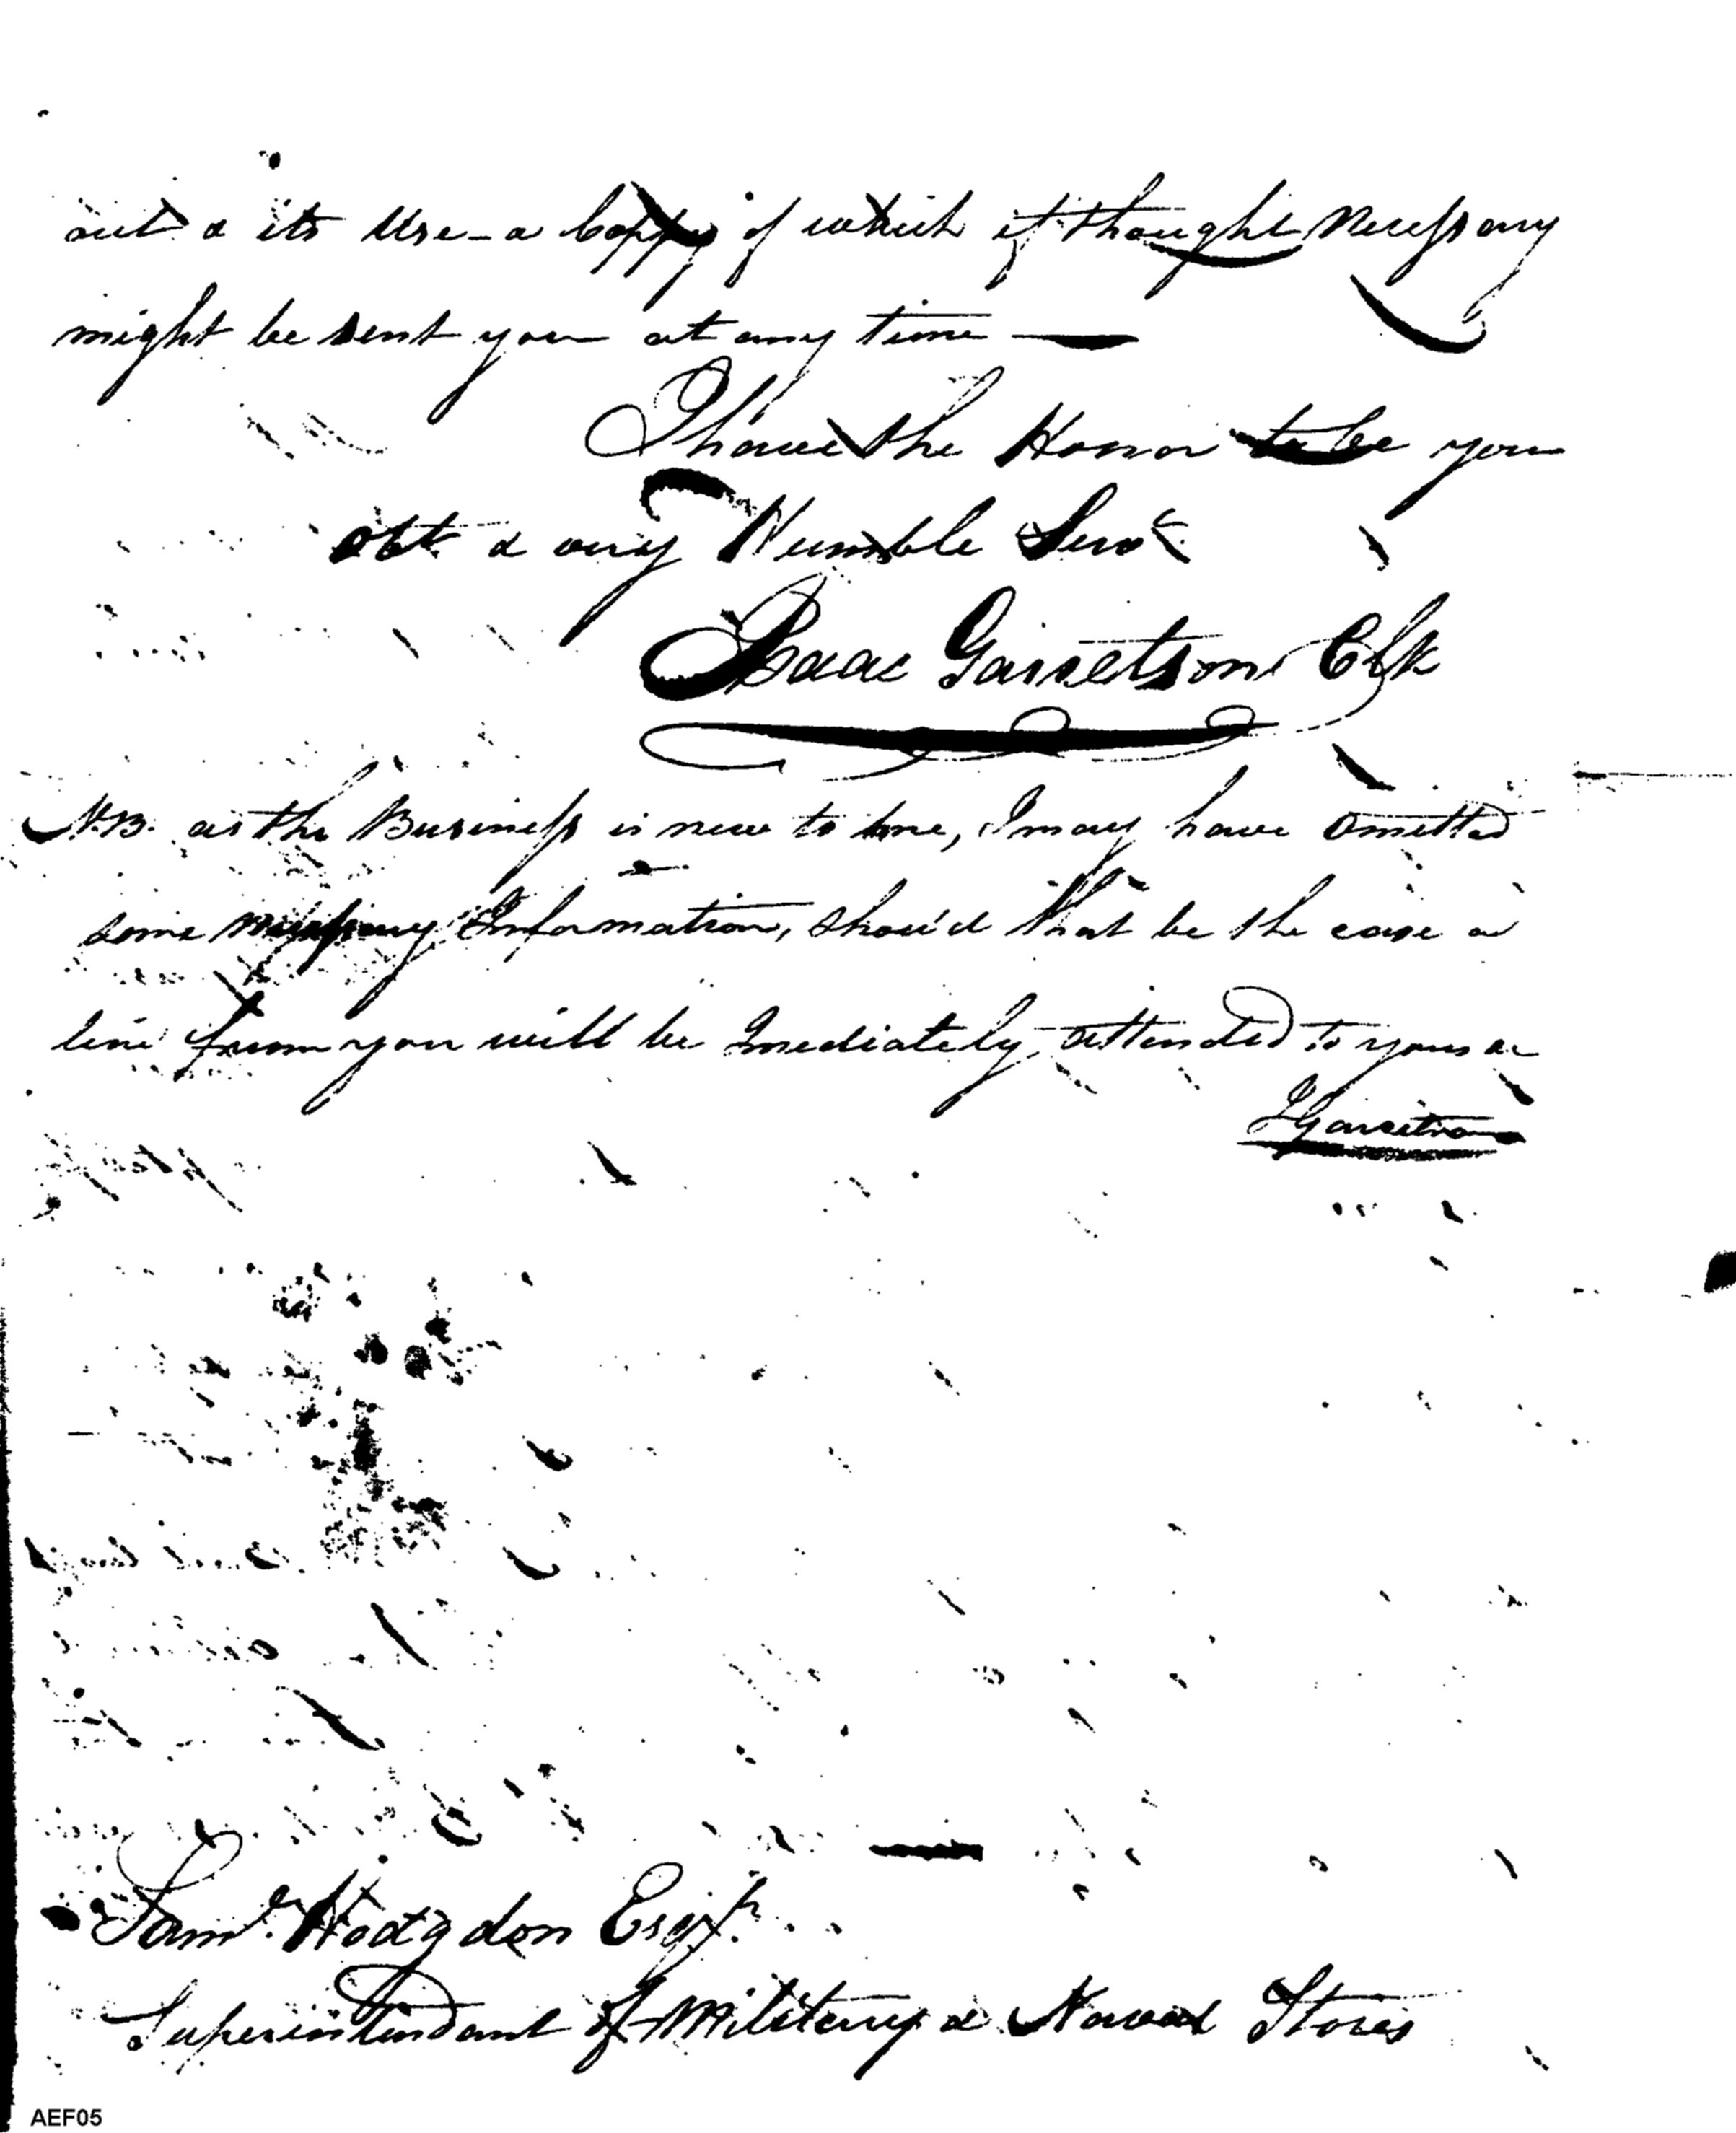 out & its Use - a Coppy of which if thought necessary
might be sent you at any time —
I have the Honor to be you
obt & very Humble Servt
Isaac Garretson Clk
N.B. as the Business is new to me, I may have omitted
some necessary Information, shou'd that be the case a
line from you will be Imediately attended to yours &c
I Garretson
Saml Hodgdon Esqr.
Superintendant of Military & Naval Stores
AEF05